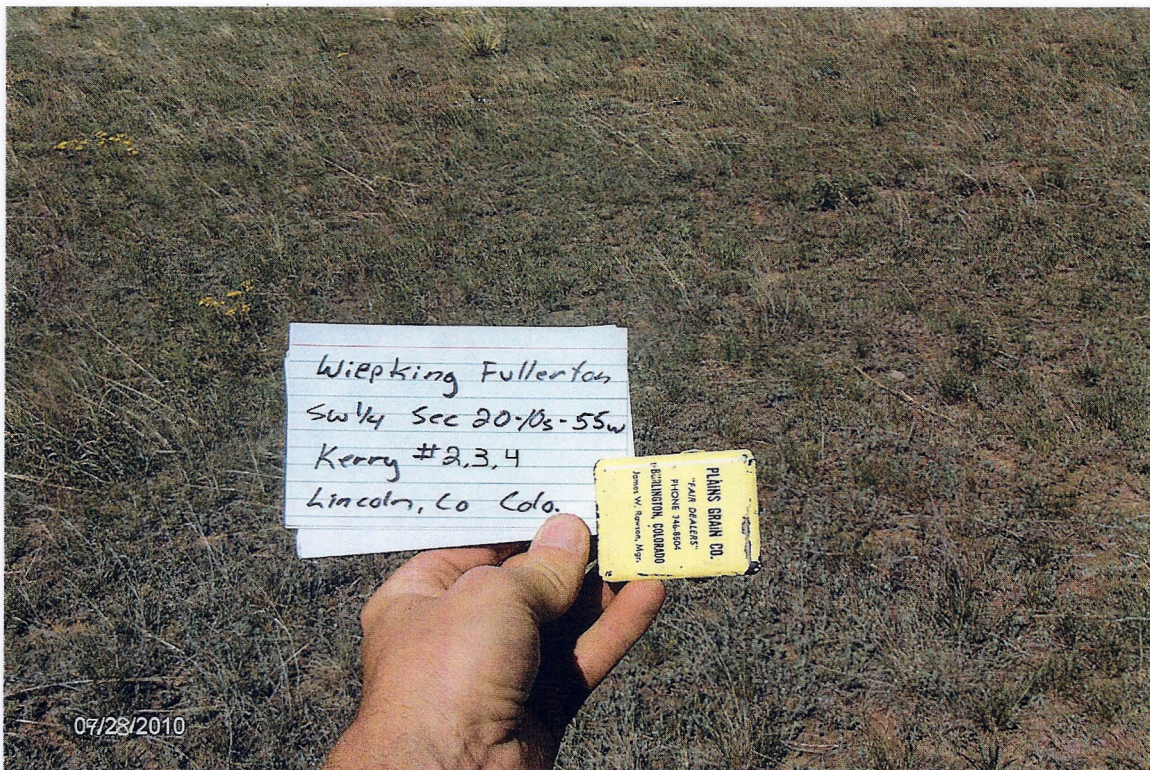 Wiepking Fullerton
SW 1/4 Sec 20-10s-55w
Kerry #2,3,4
Lincoln, Co Colo.
PLAINS GRAIN CO.
"FAIR DEALERS"
PHONE 346-8504
BURLINGTON, COLORADO
James W. Rowson, Mgr.